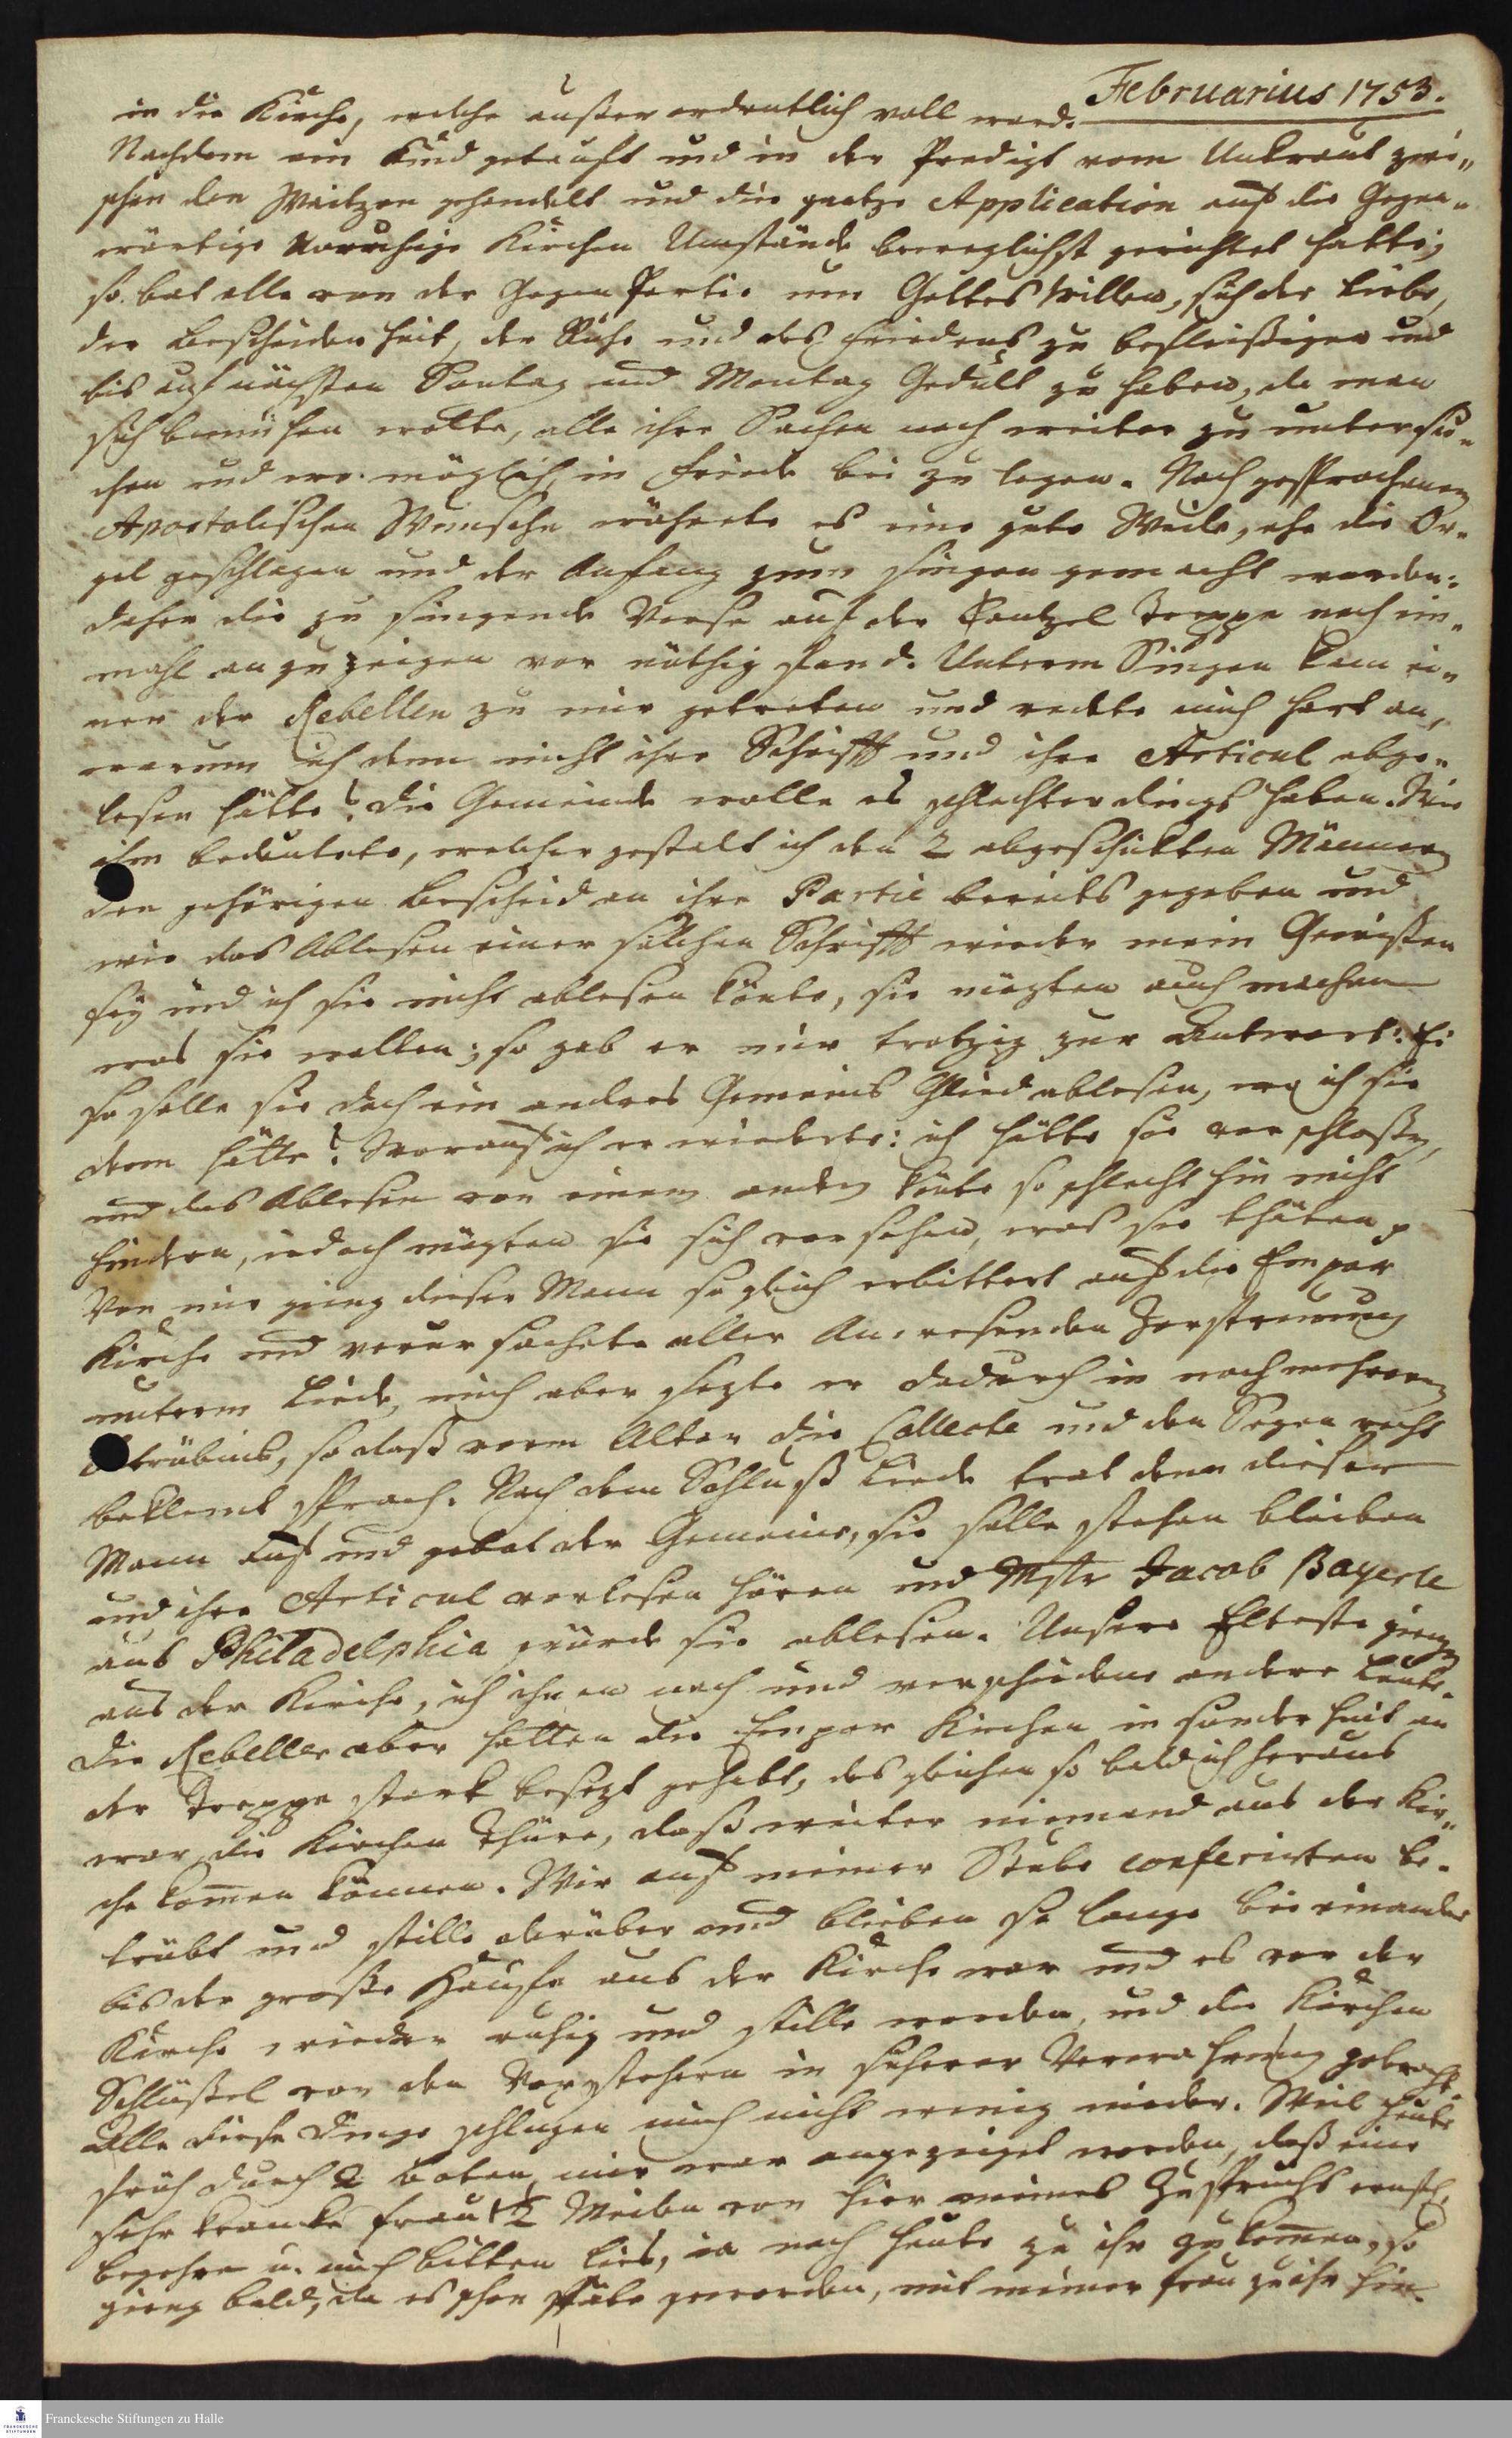 Februarius 1753.
in die Kirche, welche außer ordentlich voll ward.
Nachdem ein Kind getauft und in der Predigt vom Unkraut zwi„
schen den Weitzen gehandelt und die gantze Application auf die Gegen„
wärtige unruhige Kirchen Umstände beweglichst gerichtet hatte;
so bat alle von der Gegen Partie um Gottes Willen, sich der Liebe,
der Bescheidenheit, der Ruhe und des Friedens zu befleißigen und
bis auf nächsten Sontag und Montag Gedult zu haben, da man
sich bemühen wolte, alle ihre Sachen noch weiter zu untersu„
chen und wo möglich, in Friede bei zu legen. Nach gesprochenem
Apostolischen Wunsche währete es eine gute Weile, ehe die Or„
gel geschlagen und der Anfang zum singen gemacht worden:
daher die zu singende Verse auf der Cantzel Treppe noch ein„
mahl anzuzeigen vor nöthig fand. Unterm Singen kam ei„
ner der Rebellen zu mir getreten und redete mich hart an,
warum ich denn nicht ihre Schrifft und ihre Articul abge„
lesen hätte? die Gemeinde wolle es schlechterdings haben. Wie
ihm bedeutete, welcher gestalt ich den 2 abgeschickten Männern
den gehörigen Bescheid an ihre Partie bereits gegeben und
wie das Ablesen einer solchen Schrifft wieder mein Gewißen
sey und ich sie nicht ablesen könte, sie mögten auch machen
was sie wolten; so gab er mir trotzig zur Antwort: Ei
so solle sie doch ein andres Gemeins Glied ablesen, wo ich sie
denn hätte? Worauf ich erwiederte: ich hätte sie verschloßen,
und das Ablesen von einem andern könte so schlecht hin nicht
hindern, iedoch mögten sie sich vorsehen, was sie thäten.
Von mir gieng dieser Mann so gleich erbittert auf die Empor
Kirche und verursachete aller Anwesenden Zerstreuung
unterm Liede, mich aber sezte er dadurch in noch mehrere
Betrübnis, so daß vorm Altar die Collecte und den Segen recht
beklemt sprach. Nach dem Schluß Liede trat denn dieser
Mann auf und gebot der Gemeine, sie solle stehen bleiben
und ihre Articul verlesen hören und Mstr Jacob Bayerle
aus Philadelphia würde sie ablesen. Unsere Elteste giengen
aus der Kirche, ich ihnen nach und verschiedene andere Leute.
Die Rebellen aber hatten die Empor Kirchen in sonderheit an
der Treppe stark besezt gehabt, desgleichen so bald ich heraus
war, die Kirchen Thüre, daß weiter niemand aus der Kir„
che kommen können. Wir auf meiner Stube conferirten be„
trübt und stille darüber und blieben so lange bei einander
bis der große Haufe aus der Kirche war und es vor der
Kirche wieder ruhig und stille worden, und die Kirchen
Schlüßel von den Vorstehern in sicherer Verwahrung gebracht.
Alle diese Dinge schlugen mich nicht wenig nieder. Weil heute
früh durch 2 Boten mir war angezeiget worden, daß eine
sehr krancke Frau 1½ Meilen von hier meines Zuspruchs ernstl.
begehre u. mich bitten ließ, ia noch heute zu ihr zu kommen, so
gieng bald, da es schon späte geworden, mit meiner Frau zu ihr hin.
Franckesche Stiftungen zu Halle